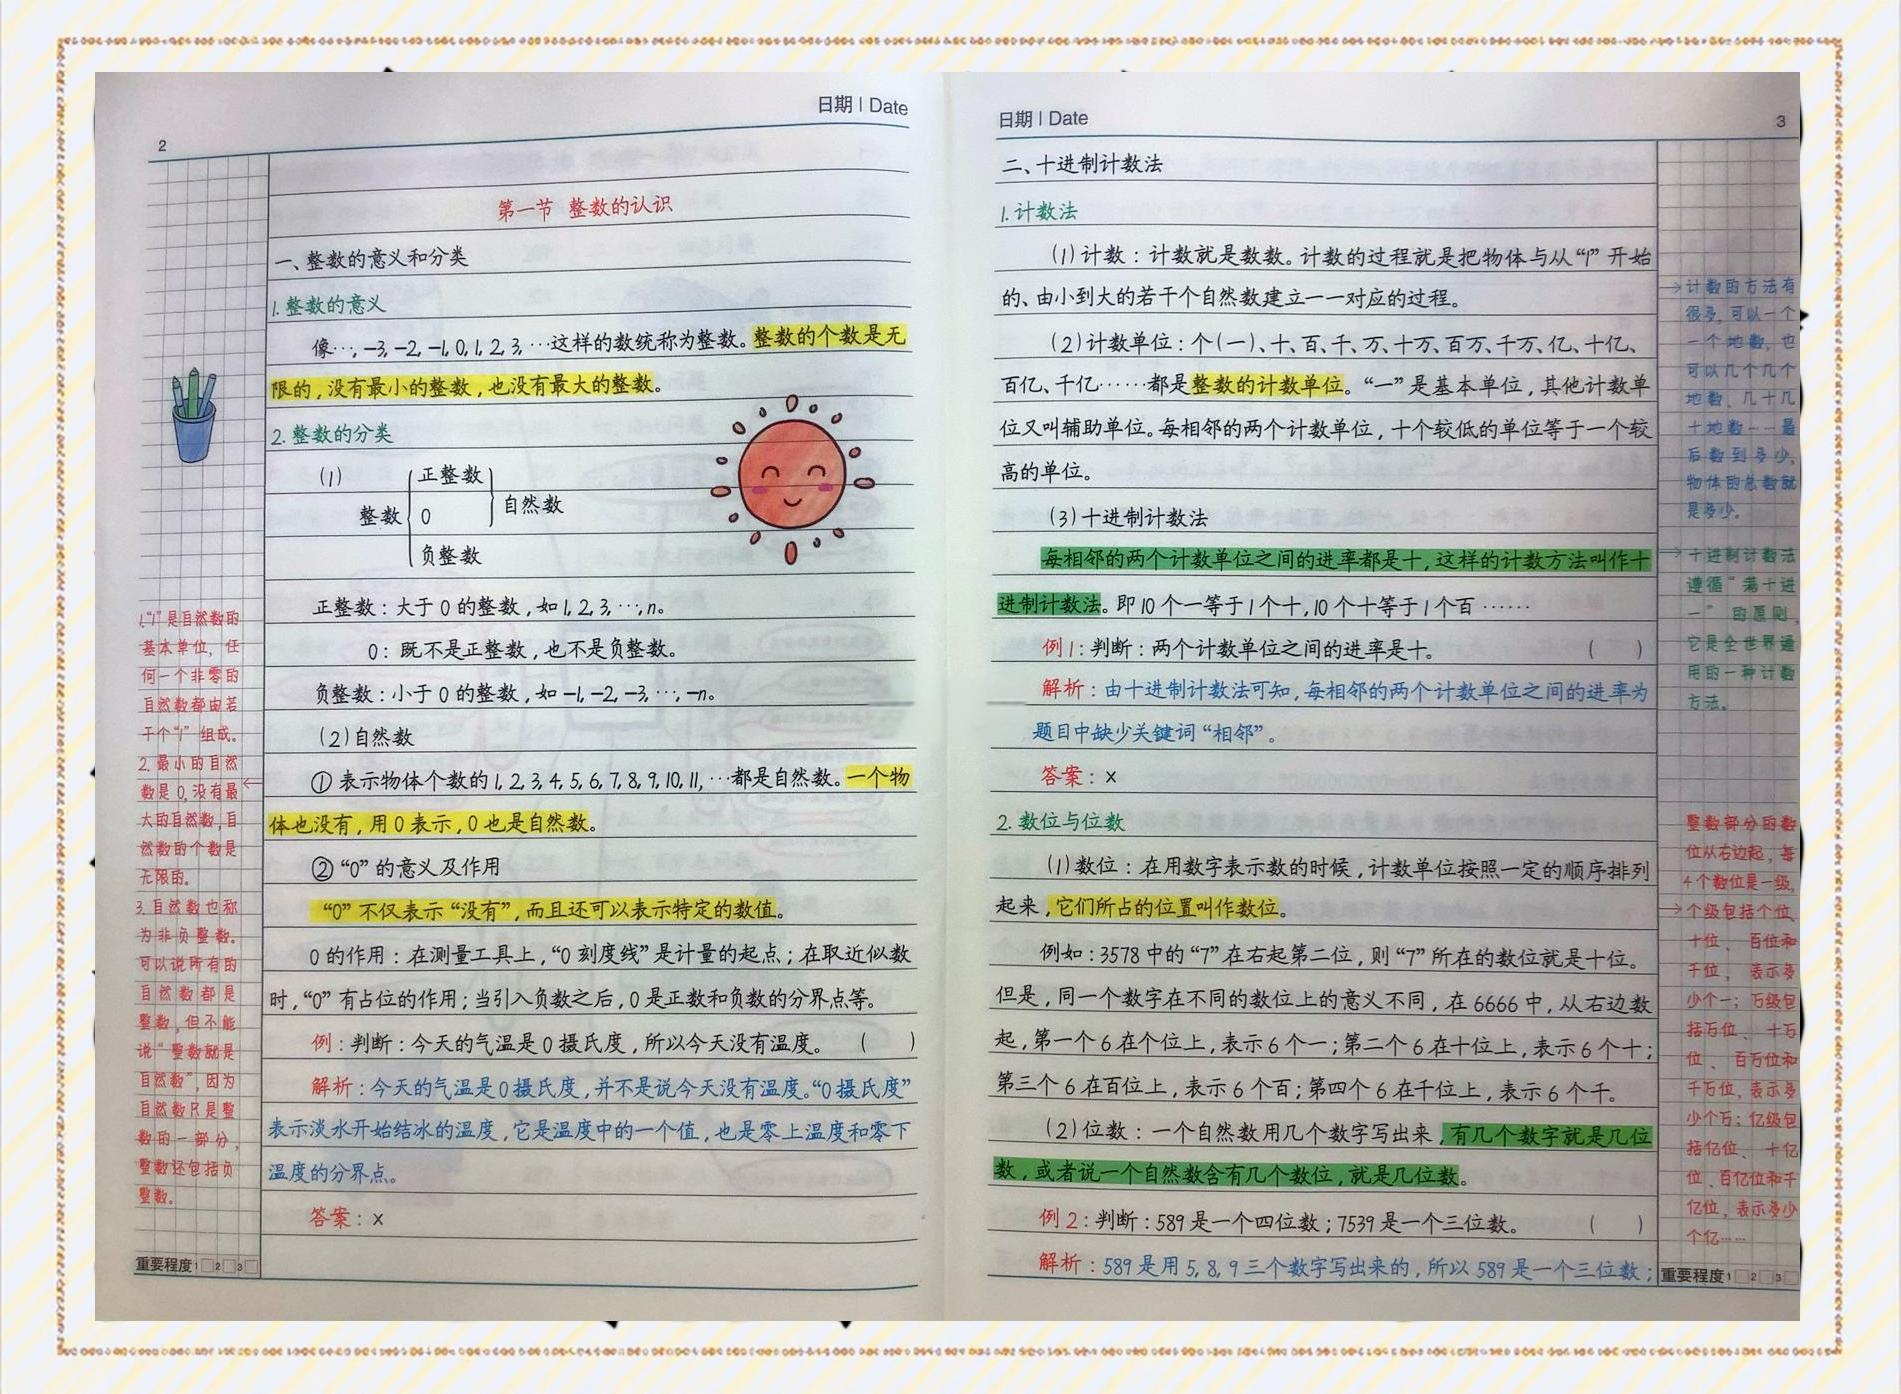 日期 | Date
2
第一节 整数的认识
一、整数的意义和分类
1.整数的意义
像…,-3,-2,-1,0,1,2,3,…这样的数统称为整数。整数的个数是无
限的,没有最小的整数,也没有最大的整数。
2.整数的分类
(1)
正整数
整数 0 自然数
负整数
正整数:大于0的整数,如1,2,3,…,n。
0:既不是正整数,也不是负整数。
负整数:小于0的整数,如-1,-2,-3,…,-n。
(2)自然数
①表示物体个数的1,2,3,4,5,6,7,8,9,10,11,…都是自然数。一个物
体也没有,用0表示,0也是自然数。
②“0”的意义及作用
“0”不仅表示“没有”,而且还可以表示特定的数值。
0的作用:在测量工具上,“0刻度线”是计量的起点;在取近似数
时,“0”有占位的作用;当引入负数之后,0是正数和负数的分界点等。
例:判断:今天的气温是0摄氏度,所以今天没有温度。 ( )
解析:今天的气温是0摄氏度,并不是说今天没有温度。“0摄氏度”
表示淡水开始结冰的温度,它是温度中的一个值,也是零上温度和零下
温度的分界点。
答案:×
1.“1”是自然数的
基本单位,任
何一个非零的
自然数都由若
干个“1”组成。
2.最小的自然
数是0,没有最
大的自然数,自
然数的个数是
无限的。
3.自然数也称
为非负整数。
可以说所有的
自然数都是
整数,但不能
说“整数就是
自然数”,因为
自然数只是整
数的一部分,
整数还包括负
整数。
重要程度 1 2 3
日期 | Date
3
二、十进制计数法
1.计数法
(1)计数:计数就是数数。计数的过程就是把物体与从“1”开始
的、由小到大的若干个自然数建立一一对应的过程。
(2)计数单位:个(一)、十、百、千、万、十万、百万、千万、亿、十亿、
百亿、千亿……都是整数的计数单位。“一”是基本单位,其他计数单
位又叫辅助单位。每相邻的两个计数单位,十个较低的单位等于一个较
高的单位。
(3)十进制计数法
每相邻的两个计数单位之间的进率都是十,这样的计数方法叫作十
进制计数法。即10个一等于1个十,10个十等于1个百……
例1:判断:两个计数单位之间的进率是十。 ( )
解析:由十进制计数法可知,每相邻的两个计数单位之间的进率为
题目中缺少关键词“相邻”。
答案:×
2.数位与位数
(1)数位:在用数字表示数的时候,计数单位按照一定的顺序排列
起来,它们所占的位置叫作数位。
例如:3578中的“7”在右起第二位,则“7”所在的数位就是十位。
但是,同一个数字在不同的数位上的意义不同,在6666中,从右边数
起,第一个6在个位上,表示6个一;第二个6在十位上,表示6个十;
第三个6在百位上,表示6个百;第四个6在千位上,表示6个千。
(2)位数:一个自然数用几个数字写出来,有几个数字就是几位
数,或者说一个自然数含有几个数位,就是几位数。
例2:判断:589是一个四位数;7539是一个三位数。 ( )
解析:589是用5,8,9三个数字写出来的,所以589是一个三位数;
→计数的方法有
很多,可以一个
一个地数,也
可以几个几个
地数、几十几
十地数……最
后数到多少,
物体的总数就
是多少。
→十进制计数法
遵循“满十进
一”的原则,
它是全世界通
用的一种计数
方法。
整数部分的数
位从右边起,每
4个数位是一级,
→个级包括个位、
十位、百位和
千位,表示多
少个一;万级包
括万位、十万
位、百万位和
千万位,表示多
少个万;亿级包
括亿位、十亿
位、百亿位和千
亿位,表示多少
个亿……
重要程度 1 2 3